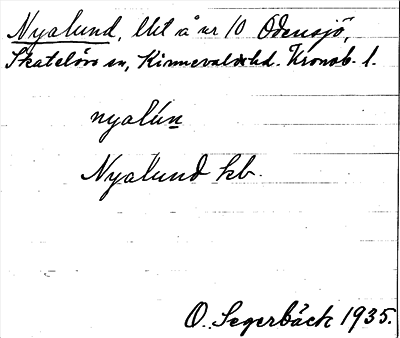 Nyalund, lht å nr 10 Odensjö,
Skatelövs sn, Kinnevalds hd. Kronob. l.
nyalún
Nyalund kb.
O. Segerbäck 1935.